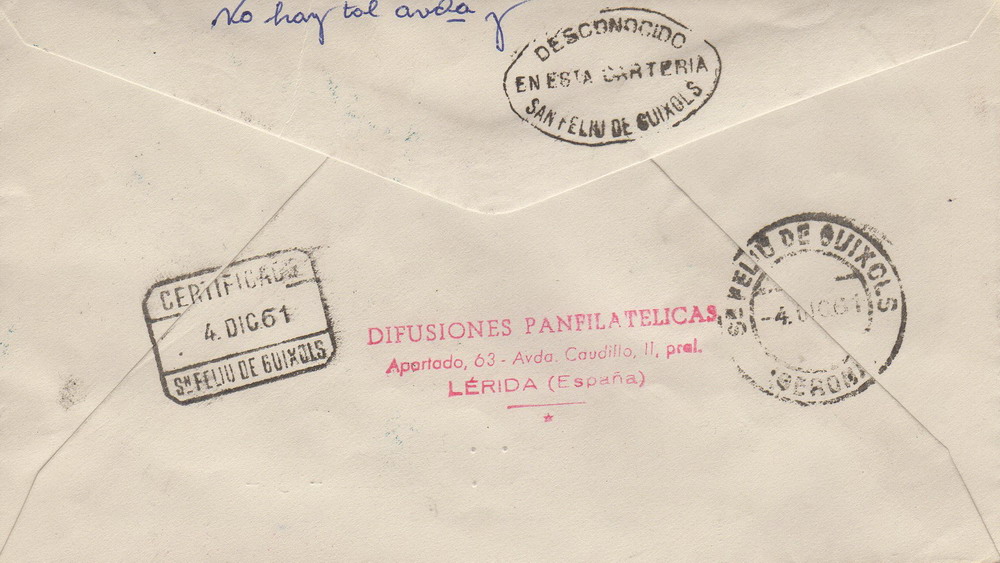 No hay tal avda y
DESCONOCIDO
EN ESTA CARTERIA
SAN FELIU DE GUIXOLS
CERTIFICADO
4. DIC.61
Sn FELIU DE GUIXOLS
DIFUSIONES PANFILATELICAS
Apartado, 63 - Avda. Caudillo, 11, pral.
LÉRIDA (España)
Sn FELIU DE GUIXOLS
-4.DIC.61
(GERONA)